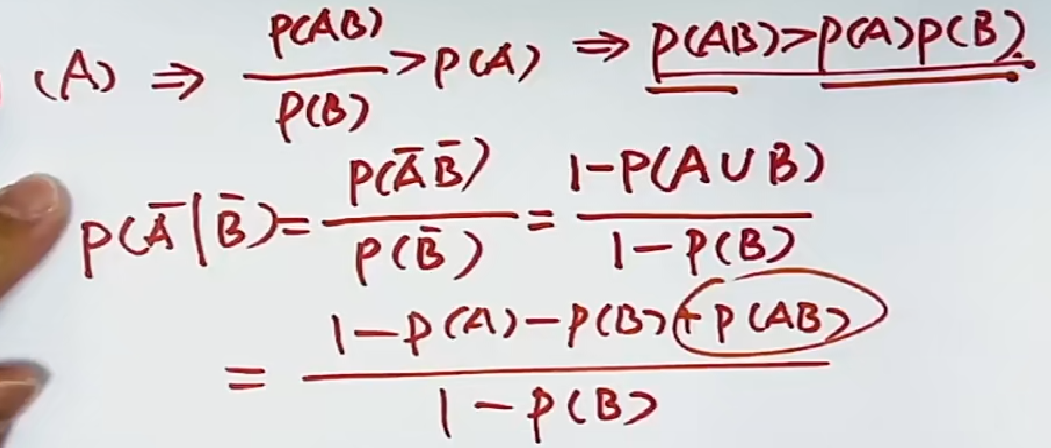 (A) ⇒ P(AB)/P(B) > P(A) ⇒ P(AB)>P(A)P(B).
P(A̅|B̅) = P(A̅B̅)/P(B̅) = 1-P(A∪B)/1-P(B)
= 1-P(A)-P(B)+P(AB)/1-P(B)